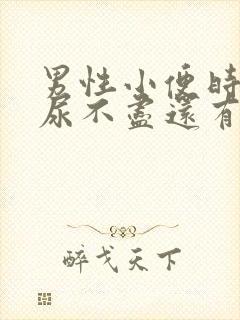 男性小便時
尿不盡還有
醉戈天下